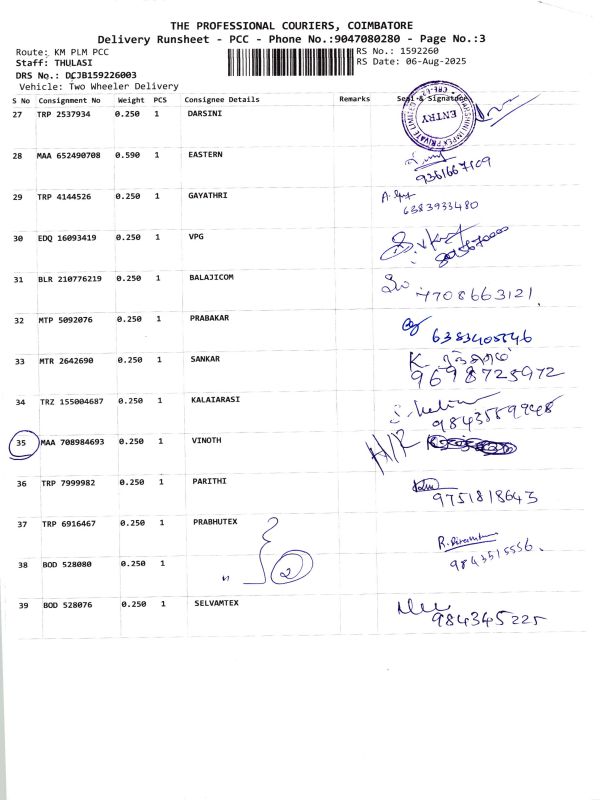 THE PROFESSIONAL COURIERS, COIMBATORE
Delivery Runsheet - PCC - Phone No.:9047080280 - Page No.:3
Route: KM PLM PCC RS No.: 1592260
Staff: THULASI RS Date: 06-Aug-2025
DRS No.: DCJB159226003
Vehicle: Two Wheeler Delivery
S No Consignment No Weight PCS Consignee Details Remarks Seal & Signature
27 TRP 2537934 0.250 1 DARSINI
IMPEX PRIVATE LIMITED
ENTRY
28 MAA 652490708 0.590 1 EASTERN
9361667109
29 TRP 4144526 0.250 1 GAYATHRI
6383933480
30 EDQ 16093419 0.250 1 VPG
31 BLR 210776219 0.250 1 BALAJICOM
4708663121.
32 MTP 5092076 0.250 1 PRABAKAR
6383405546
33 MTR 2642690 0.250 1 SANKAR
9698725972
34 TRZ 155004687 0.250 1 KALAIARASI
35 MAA 708984693 0.250 1 VINOTH H/R
36 TRP 7999982 0.250 1 PARITHI
9751818643
37 TRP 6916467 0.250 1 PRABHUTEX
9843515556.
38 BOD 528080 0.250 1 " 2
39 BOD 528076 0.250 1 SELVAMTEX
984345225